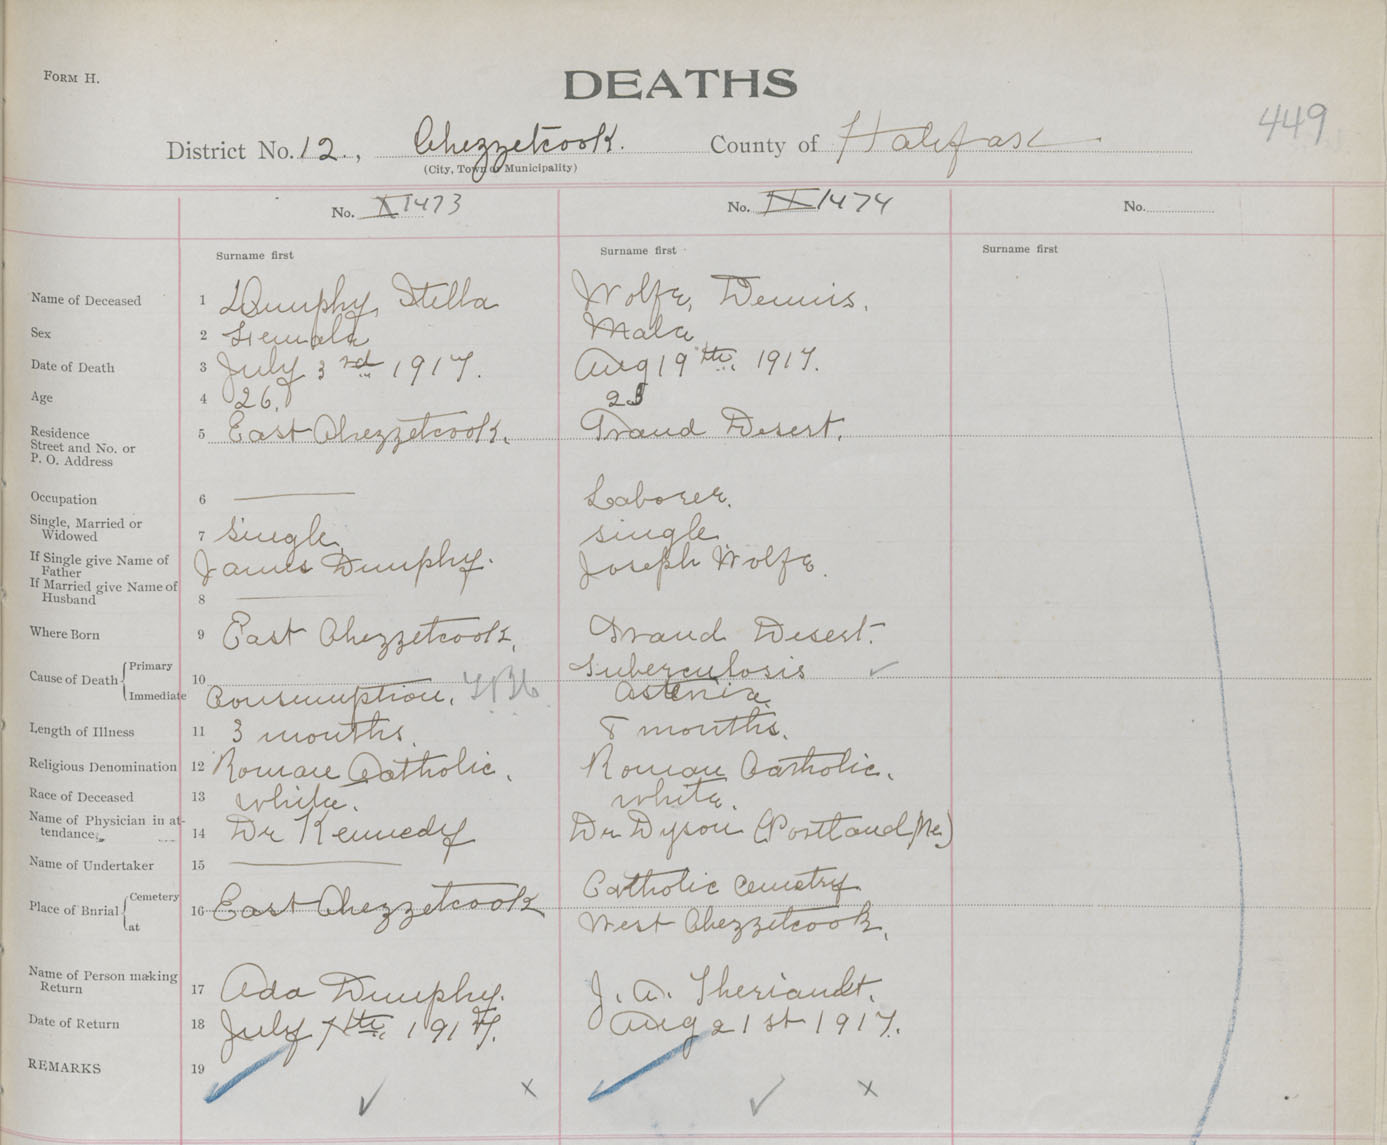 FORM H.
DEATHS
449
District No. 12., Chezzetcook. County of Halifax
(City, Town or Municipality)
No. X 1473 No. 1474 No.
Surname first Surname first Surname first
Name of Deceased 1 Dumphy, Stella Wolfe, Dennis.
Sex 2 Female Male
Date of Death 3 July 3rd 1917. Aug 19th. 1917.
Age 4 26.
Residence
Street and No. or
P. O. Address 5 East Chezzetcook. Grand Desert.
Occupation 6 Laborer.
Single, Married or
Widowed 7 Single. single
If Single give Name of
Father James Dumphy. Joseph Wolfe.
If Married give Name of
Husband 8
Where Born 9 East Chezzetcook. Grand Desert.
Cause of Death Primary 10 Tuberculosis
Immediate Consumption. Astenia
Length of Illness 11 3 months. 8 months.
Religious Denomination 12 Roman Catholic. Roman Catholic.
Race of Deceased 13 white. white.
Name of Physician in at-
tendance 14 Dr Kennedy Dr Dyson (Portland, Me.)
Name of Undertaker 15
Place of Burial Cemetery 16 East Chezzetcook Catholic Cemetry
at West Chezzetcook.
Name of Person making
Return 17 Ada Dumphy. J. A. Theriault.
Date of Return 18 July 7th. 1917. Aug 21st 1917.
REMARKS 19
x x